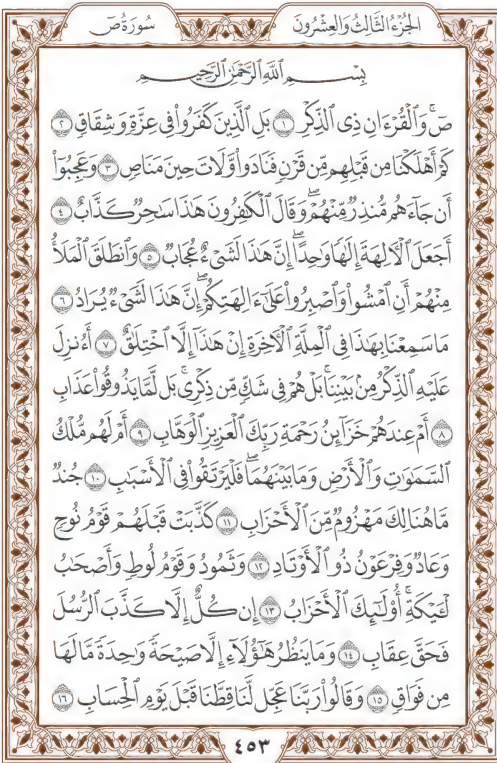 الجزء الثالث والعشرون سورة ص
بِسْمِ اللَّهِ الرَّحْمَٰنِ الرَّحِيمِ
صٓۚ وَٱلْقُرْءَانِ ذِى ٱلذِّكْرِ ١ بَلِ ٱلَّذِينَ كَفَرُوا۟ فِى عِزَّةٍ وَشِقَاقٍ ٢
كَمْ أَهْلَكْنَا مِن قَبْلِهِم مِّن قَرْنٍ فَنَادَوا۟ وَّلَاتَ حِينَ مَنَاصٍ ٣ وَعَجِبُوٓا۟
أَن جَآءَهُم مُّنذِرٌ مِّنْهُمْۖ وَقَالَ ٱلْكَٰفِرُونَ هَٰذَا سَٰحِرٌ كَذَّابٌ ٤
أَجَعَلَ ٱلْءَالِهَةَ إِلَٰهًا وَٰحِدًاۖ إِنَّ هَٰذَا لَشَىْءٌ عُجَابٌ ٥ وَٱنطَلَقَ ٱلْمَلَأُ
مِنْهُمْ أَنِ ٱمْشُوا۟ وَٱصْبِرُوا۟ عَلَىٰٓ ءَالِهَتِكُمْۖ إِنَّ هَٰذَا لَشَىْءٌ يُرَادُ ٦
مَا سَمِعْنَا بِهَٰذَا فِى ٱلْمِلَّةِ ٱلْءَاخِرَةِ إِنْ هَٰذَآ إِلَّا ٱخْتِلَٰقٌ ٧ أَءُنزِلَ
عَلَيْهِ ٱلذِّكْرُ مِنۢ بَيْنِنَاۚ بَلْ هُمْ فِى شَكٍّ مِّن ذِكْرِىۚ بَل لَّمَّا يَذُوقُوا۟ عَذَابِ
٨ أَمْ عِندَهُمْ خَزَآئِنُ رَحْمَةِ رَبِّكَ ٱلْعَزِيزِ ٱلْوَهَّابِ ٩ أَمْ لَهُم مُّلْكُ
ٱلسَّمَٰوَٰتِ وَٱلْأَرْضِ وَمَا بَيْنَهُمَاۖ فَلْيَرْتَقُوا۟ فِى ٱلْأَسْبَٰبِ ١٠ جُندٌ
مَّا هُنَالِكَ مَهْزُومٌ مِّنَ ٱلْأَحْزَابِ ١١ كَذَّبَتْ قَبْلَهُمْ قَوْمُ نُوحٍ
وَعَادٌ وَفِرْعَوْنُ ذُو ٱلْأَوْتَادِ ١٢ وَثَمُودُ وَقَوْمُ لُوطٍ وَأَصْحَٰبُ
لْـَٔيْكَةِۚ أُو۟لَٰٓئِكَ ٱلْأَحْزَابُ ١٣ إِن كُلٌّ إِلَّا كَذَّبَ ٱلرُّسُلَ
فَحَقَّ عِقَابِ ١٤ وَمَا يَنظُرُ هَٰٓؤُلَآءِ إِلَّا صَيْحَةً وَٰحِدَةً مَّا لَهَا
مِن فَوَاقٍ ١٥ وَقَالُوا۟ رَبَّنَا عَجِّل لَّنَا قِطَّنَا قَبْلَ يَوْمِ ٱلْحِسَابِ ١٦
٤٥٣